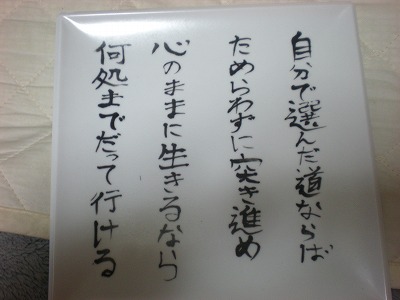 自分で選んだ道ならば
ためらわずに突き進め
心のままに生きるなら
何処までだって行ける